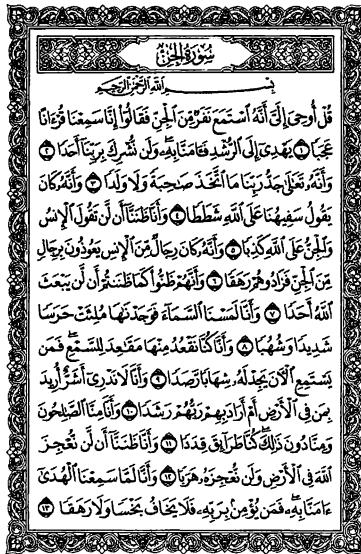 سُورَةُ الجِنِّ
بِسْمِ اللَّهِ الرَّحْمَٰنِ الرَّحِيمِ
قُلْ أُوحِىَ إِلَىَّ أَنَّهُ ٱسْتَمَعَ نَفَرٌ مِّنَ ٱلْجِنِّ فَقَالُوٓا۟ إِنَّا سَمِعْنَا قُرْءَانًا
عَجَبًا ١ يَهْدِىٓ إِلَى ٱلرُّشْدِ فَـَٔامَنَّا بِهِۦ وَلَن نُّشْرِكَ بِرَبِّنَآ أَحَدًا ٢
وَأَنَّهُۥ تَعَٰلَىٰ جَدُّ رَبِّنَا مَا ٱتَّخَذَ صَٰحِبَةً وَلَا وَلَدًا ٣ وَأَنَّهُۥ كَانَ
يَقُولُ سَفِيهُنَا عَلَى ٱللَّهِ شَطَطًا ٤ وَأَنَّا ظَنَنَّآ أَن لَّن تَقُولَ ٱلْإِنسُ
وَٱلْجِنُّ عَلَى ٱللَّهِ كَذِبًا ٥ وَأَنَّهُۥ كَانَ رِجَالٌ مِّنَ ٱلْإِنسِ يَعُوذُونَ بِرِجَالٍ
مِّنَ ٱلْجِنِّ فَزَادُوهُمْ رَهَقًا ٦ وَأَنَّهُمْ ظَنُّوا۟ كَمَا ظَنَنتُمْ أَن لَّن يَبْعَثَ
ٱللَّهُ أَحَدًا ٧ وَأَنَّا لَمَسْنَا ٱلسَّمَآءَ فَوَجَدْنَٰهَا مُلِئَتْ حَرَسًا
شَدِيدًا وَشُهُبًا ٨ وَأَنَّا كُنَّا نَقْعُدُ مِنْهَا مَقَٰعِدَ لِلسَّمْعِ فَمَن
يَسْتَمِعِ ٱلْـَٔانَ يَجِدْ لَهُۥ شِهَابًا رَّصَدًا ٩ وَأَنَّا لَا نَدْرِىٓ أَشَرٌّ أُرِيدَ
بِمَن فِى ٱلْأَرْضِ أَمْ أَرَادَ بِهِمْ رَبُّهُمْ رَشَدًا ١٠ وَأَنَّا مِنَّا ٱلصَّٰلِحُونَ
وَمِنَّا دُونَ ذَٰلِكَ كُنَّا طَرَآئِقَ قِدَدًا ١١ وَأَنَّا ظَنَنَّآ أَن لَّن نُّعْجِزَ
ٱللَّهَ فِى ٱلْأَرْضِ وَلَن نُّعْجِزَهُۥ هَرَبًا ١٢ وَأَنَّا لَمَّا سَمِعْنَا ٱلْهُدَىٰٓ
ءَامَنَّا بِهِۦ فَمَن يُؤْمِنۢ بِرَبِّهِۦ فَلَا يَخَافُ بَخْسًا وَلَا رَهَقًا ١٣